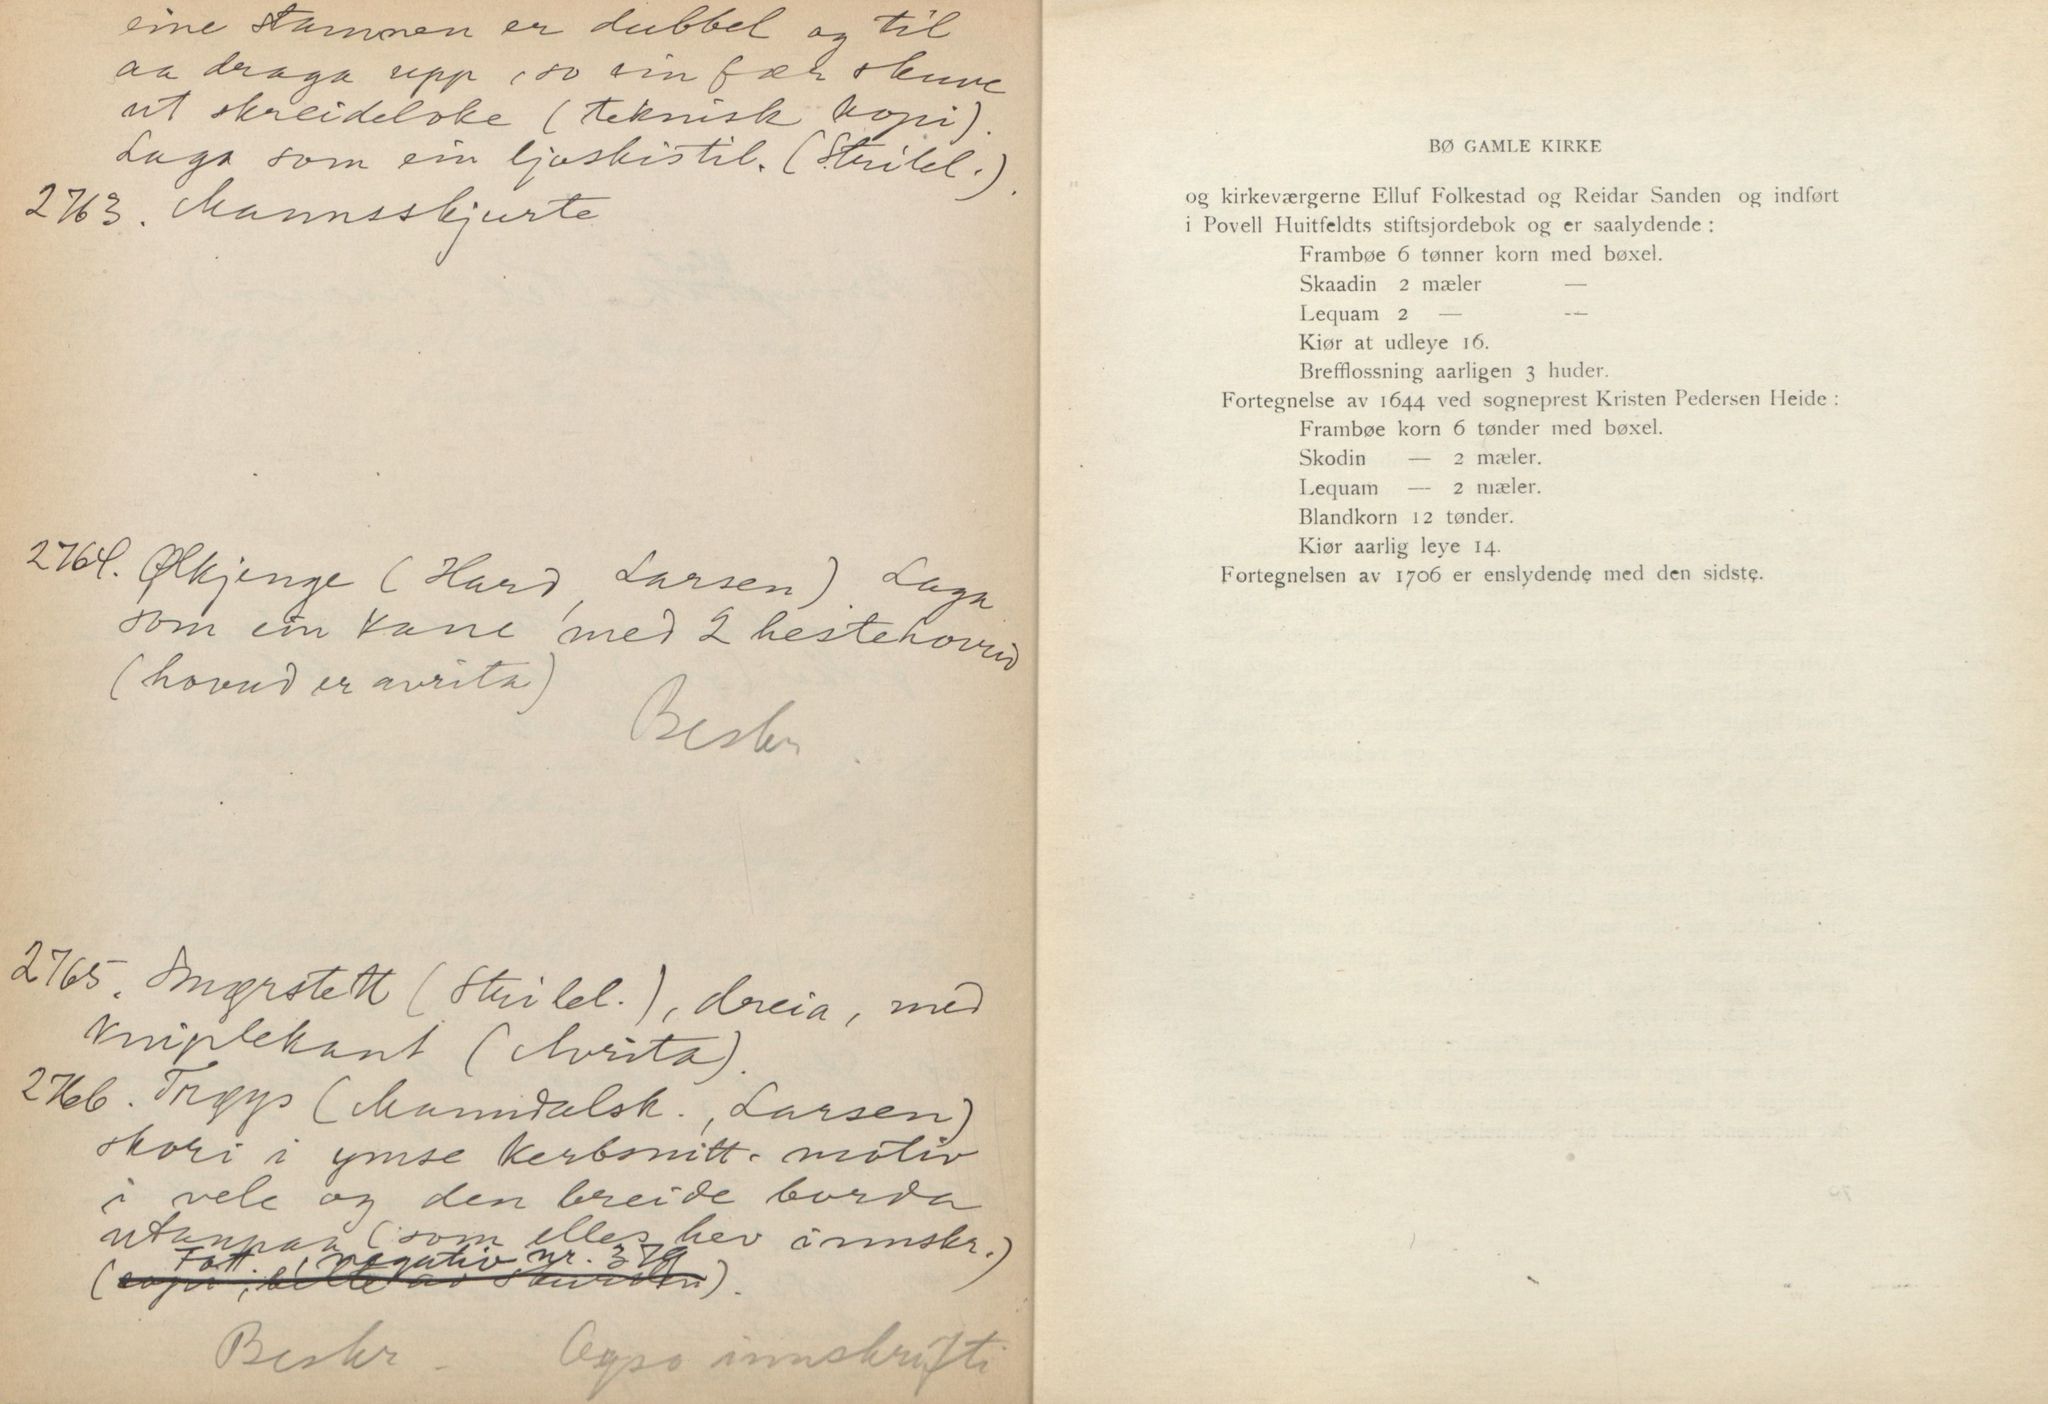 eine stamnen er dubbel og til
aa draga upp, so ein fær skuve
ut skreideloke (teknisk kopi).
Laga som ein ljoskistil. (Strilel.).
2763. Mannsskjurte
2764. Ølkjenge (Hard, Larsen) Laga
som ein kane med 2 hestehovud
(hovud er avrita)
Beskr
2765. Smørstett (Strilel.), dreia, med
kniplekant (Avrita).
2766. Trøys (Manndalsk., Larsen)
skori i ymse kerbsnitt-motiv
i vele og den breide borda
utanpaa (som elles hev innskr.)
Fott. negativ nr. 379
(kopi, bilte av skurden).
Beskr - Ogso innskrifti
BØ GAMLE KIRKE
og kirkeværgerne Elluf Folkestad og Reidar Sanden og indført
i Povell Huitfeldts stiftsjordebok og er saalydende:
Frambøe 6 tønner korn med bøxel.
Skaadin 2 mæler —
Lequam 2 — —
Kiør at udleye 16.
Brefflossning aarligen 3 huder.
Fortegnelse av 1644 ved sogneprest Kristen Pedersen Heide:
Frambøe korn 6 tønder med bøxel.
Skodin — 2 mæler.
Lequam — 2 mæler.
Blandkorn 12 tønder.
Kiør aarlig leye 14.
Fortegnelsen av 1706 er enslydende med den sidste.